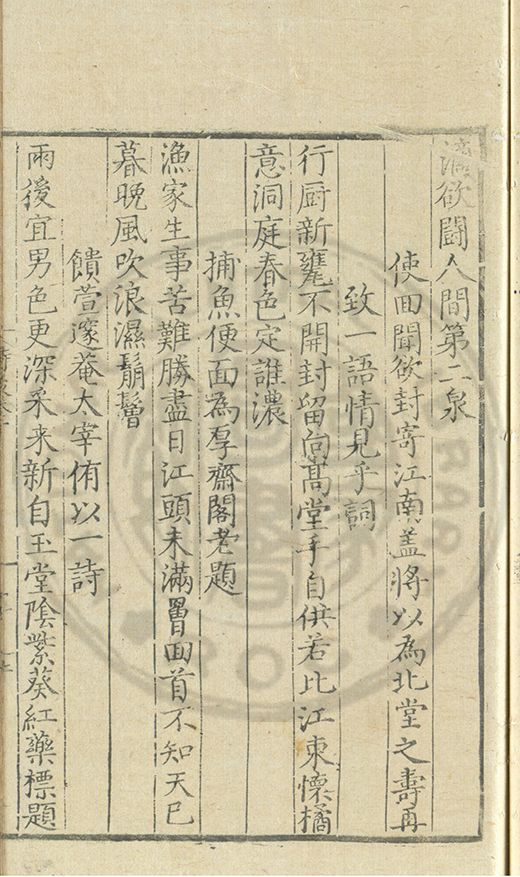 濃欲鬪人間第二泉
使回聞欲封寄江南盖將以為北堂之壽再
致一語情見乎詞
行厨新甕不開封留向髙堂手自供若比江東懷橘
意洞庭春色定誰濃
捕魚便面為厚齋閣老題
漁家生事苦難勝盡日江頭未滿罾回首不知天已
暮晚風吹浪濕鬅鬙
饋萱邃菴太宰侑以一詩
雨後宜男色更深采来新自玉堂陰紫葵紅藥標題